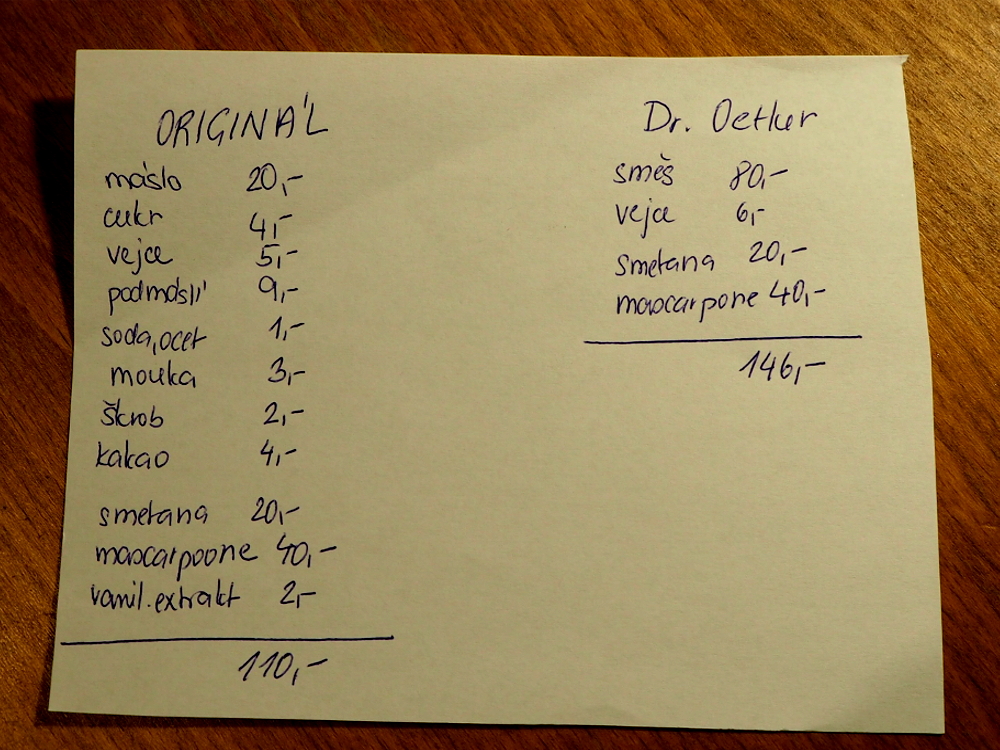 ORIGINÁL
máslo 20,-
cukr 4,-
vejce 5,-
podmáslí 9,-
soda,ocet 1,-
mouka 3,-
škrob 2,-
kakao 4,-
smetana 20,-
mascarpoone 40,-
vanil.extrakt 2,-
110,-
Dr. Oetker
směs 80,-
vejce 6,-
smetana 20,-
mascarpone 40,-
146,-